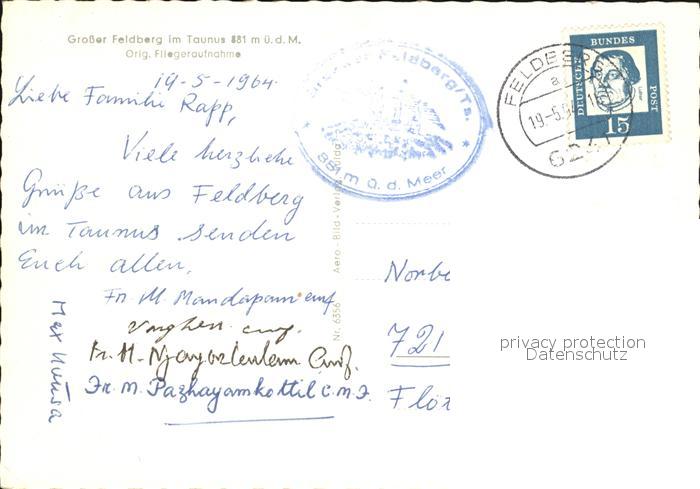 Großer Feldberg im Taunus 881 m ü. d. M.
Orig. Fliegeraufnahme
19-5-1964.
Liebe Familie Rapp,
Viele herzliche
Grüße aus Feldberg
im Taunus senden
Euch allen,
Fr. M Mandapam cmf
cmf.
Fr. M. Cmf.
Fr. M. Pazhayamkottil C.M.F.
Max
Feldberg/Ts.
881 m ü. d. Meer
Aero-Bild-Verlag
Nr. 6356
DEUTSCHE
BUNDES
POST
15
FELDBERG
a
19-5.
Norbe
721
Flöz
privacy protection
Datenschutz